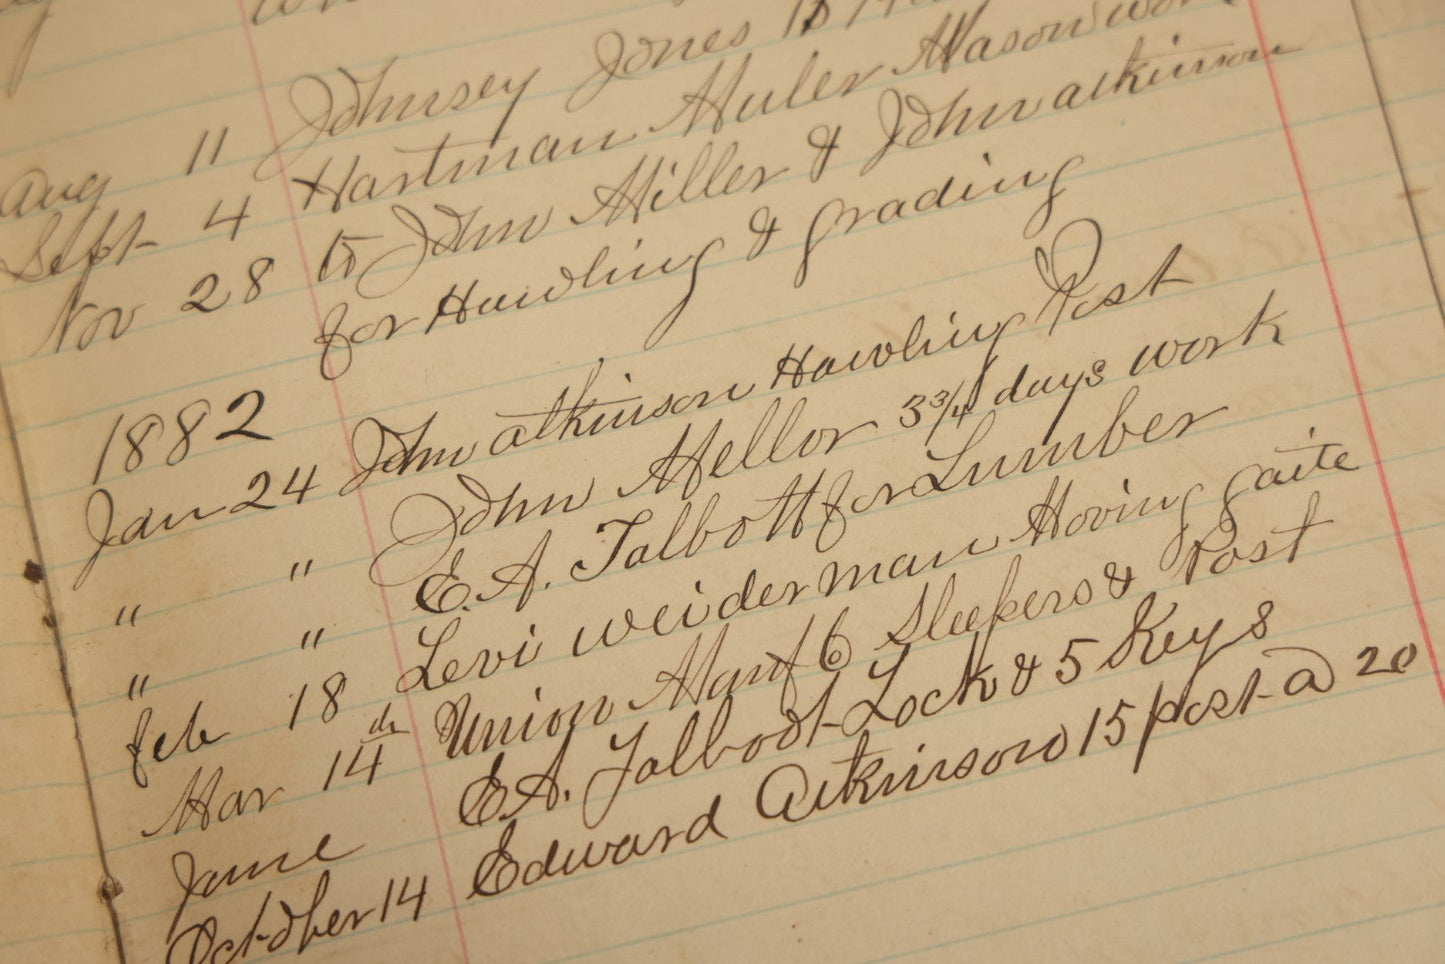 Aug 11 Johnsey Jones
Sept 4 Hartman Huler Mason work
Nov 28 to John Miller & John atkinson
for Hawling & grading
1882
Jan 24 John atkinson Hawling Post
" " John Mellor 3 3/4 days work
" " E. A. Talbott for Lumber
feb 18 Levi weiderman Moving gaite
Mar 14th Union Manf Co Sleepers & Post
June E A. Talbott Lock & 5 Keys
October 14 Edward Atkinson 15 post a 20